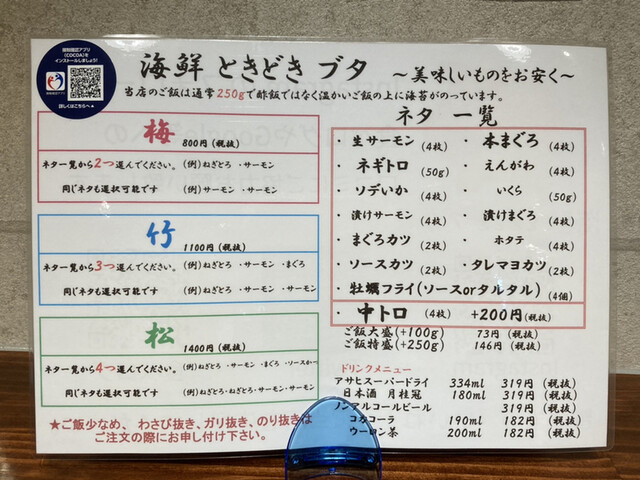 接触確認アプリ
(COCOA)を
インストールしましょう!
詳しくはこちらへ▶
海鮮 ときどき ブタ ～美味しいものをお安く～
当店のご飯は通常250gで酢飯ではなく温かいご飯の上に海苔がのっています。
梅 800円(税抜)
ネタ一覧から2つ選んでください。 (例)ねぎとろ ・サーモン
同じネタも選択可能です (例)サーモン ・サーモン
竹 1100円(税抜)
ネタ一覧から3つ選んでください。 (例)ねぎとろ ・サーモン ・まぐろ
同じネタも選択可能です (例)ねぎとろ ・サーモン ・サーモン
松 1400円(税抜)
ネタ一覧から4つ選んでください。 (例)ねぎとろ ・サーモン ・まぐろ ・ソースかー
同じネタも選択可能です (例)ねぎとろ・ねぎとろ・サーモン・サーモン
★ご飯少なめ、わさび抜き、ガリ抜き、のり抜きは
ご注文の際にお申し付け下さい。
ネタ 一覧
・生サーモン (4枚) ・本まぐろ (4枚)
・ネギトロ (50g) ・えんがわ (4枚)
・ソデいか (4枚) ・いくら (50g)
・漬けサーモン (4枚) ・漬けまぐろ (4枚)
・まぐろカツ (2枚) ・ホタテ (4枚)
・ソースカツ (2枚) ・タレマヨカツ (2枚)
・牡蠣フライ(ソースorタルタル) (4個)
・中トロ (4枚) +200円(税抜)
ご飯大盛(+100g) 73円 (税抜)
ご飯特盛(+250g) 146円 (税抜)
ドリンクメニュー
アサヒスーパードライ 334ml 319円 (税抜)
日本酒 月桂冠 180ml 319円 (税抜)
ノンアルコールビール 319円 (税抜)
コカコーラ 190ml 182円 (税抜)
ウーロン茶 200ml 182円 (税抜)